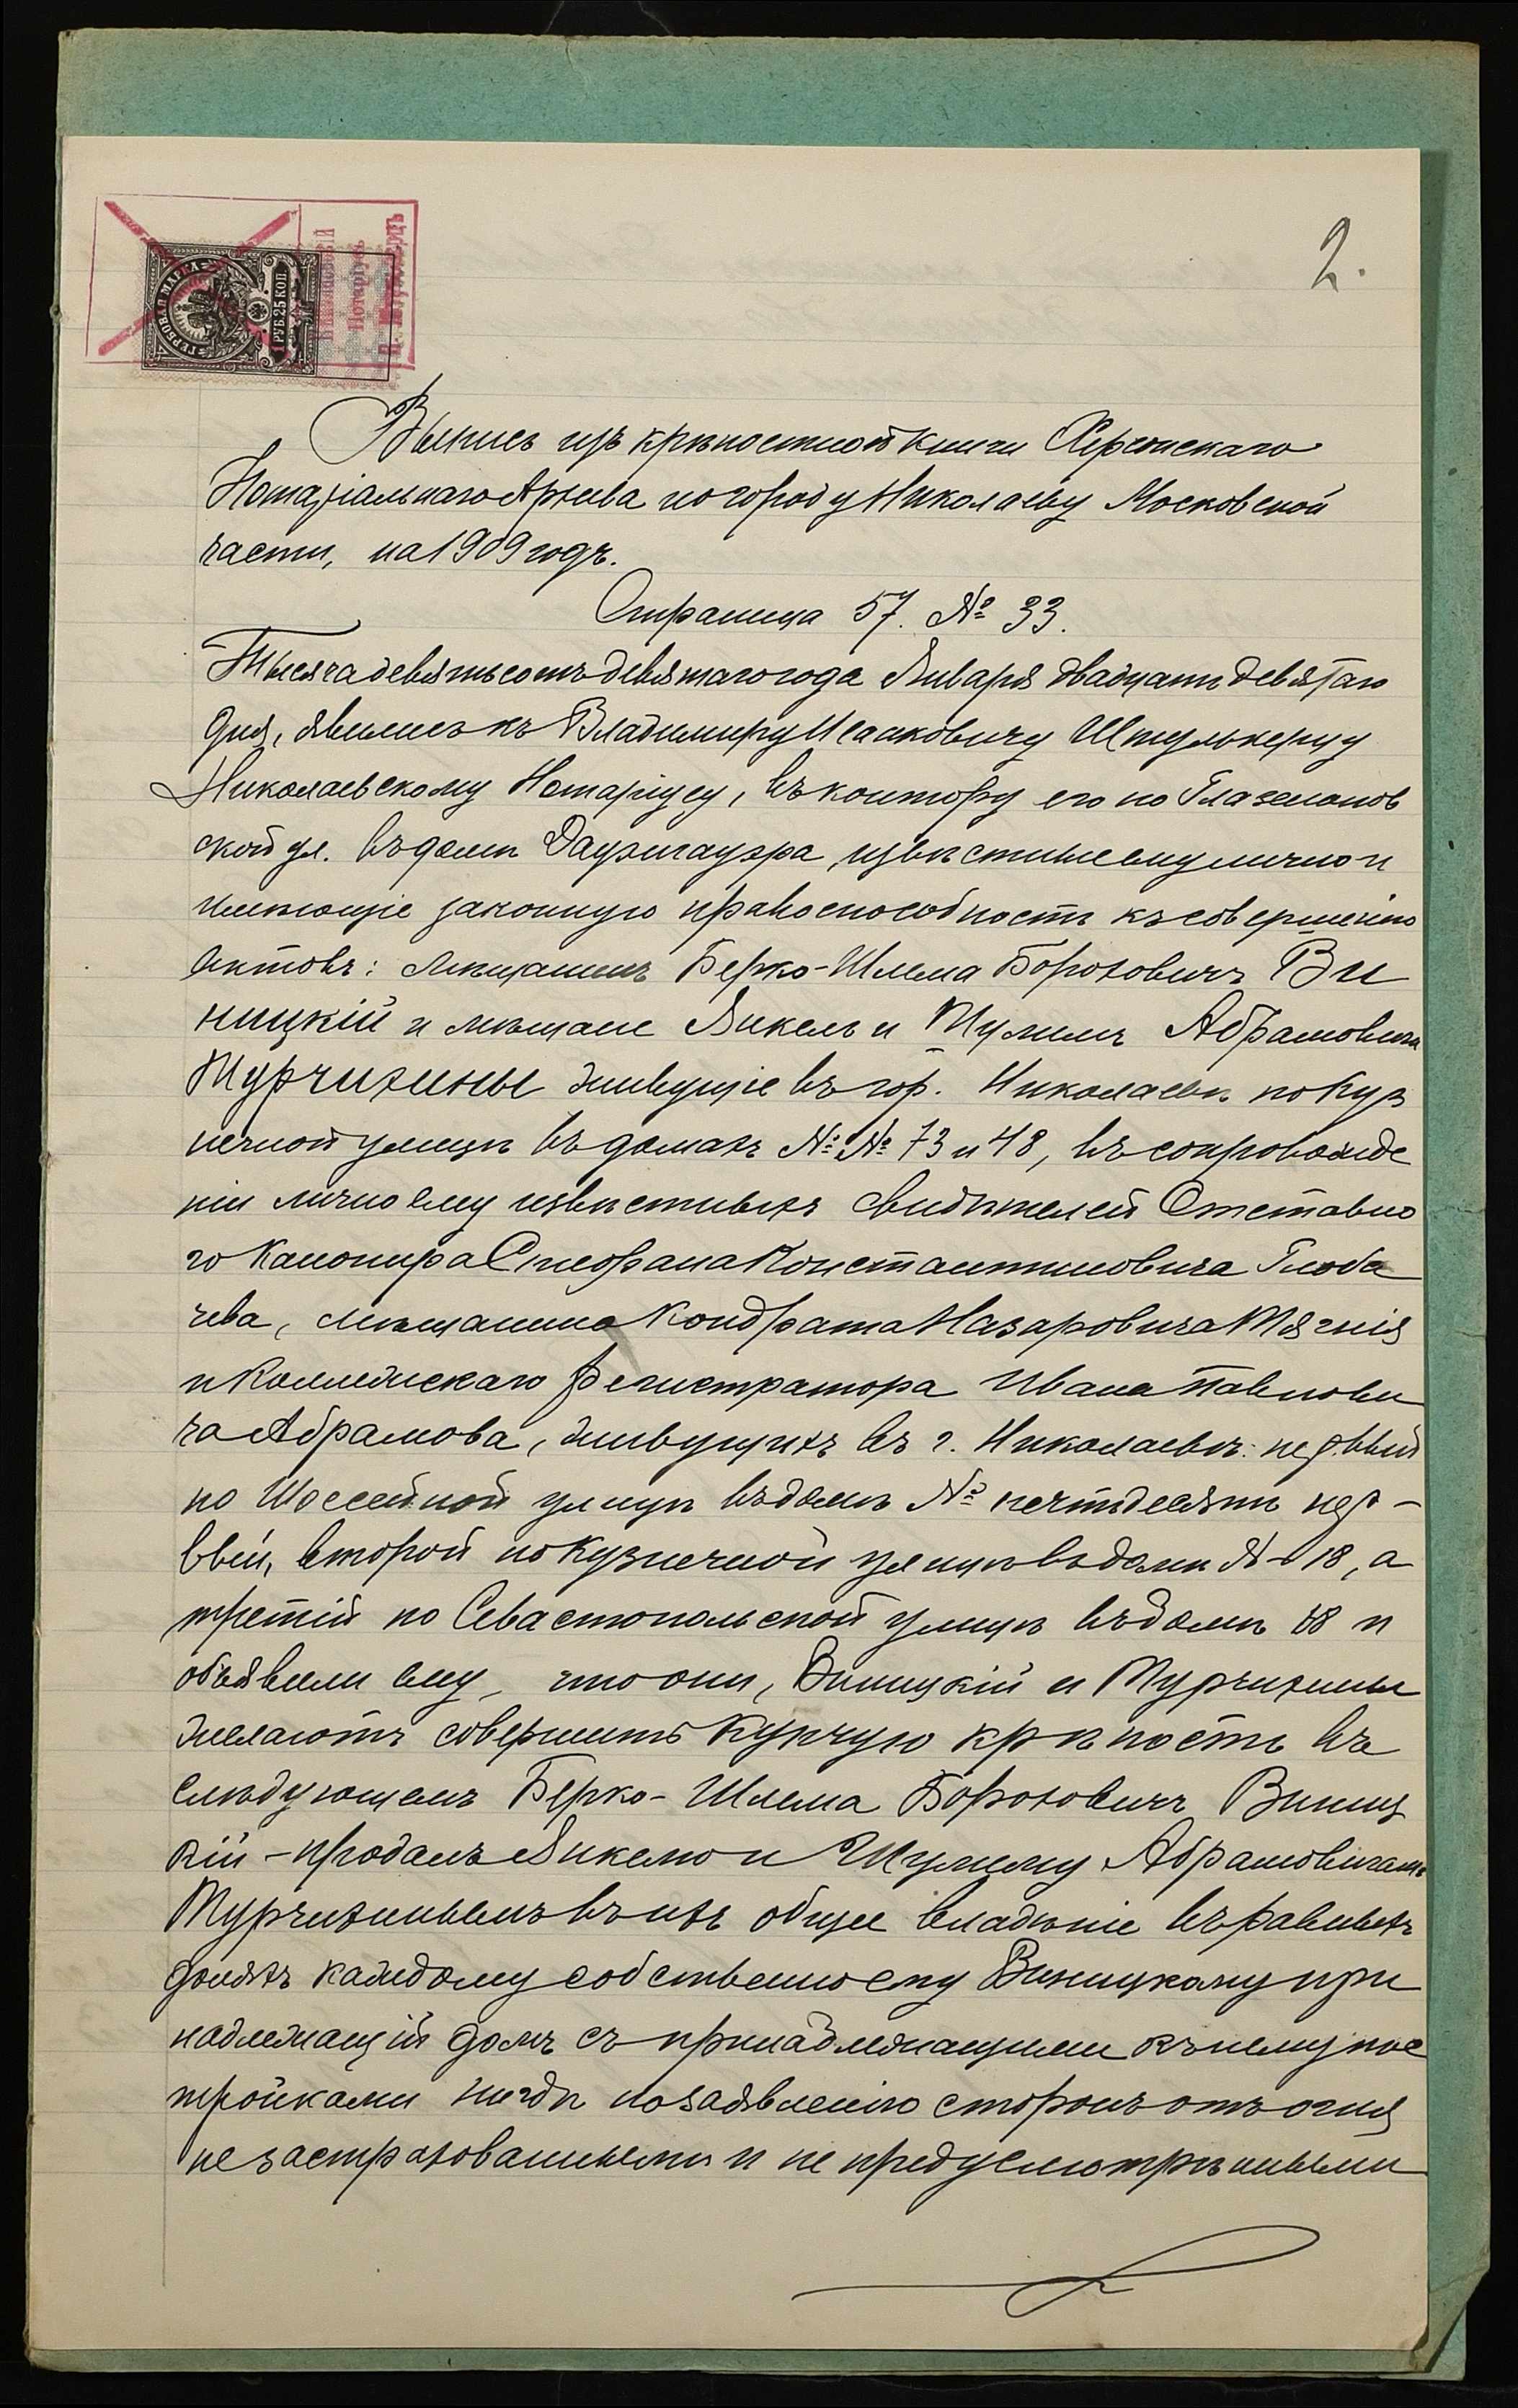 2.
ГЕРБОВАЯ МАРКА
1 РУБ. 25 КОП.
Нотаріусъ
Выпись изъ крѣпостной книги Херсонскаго
Нотаріальнаго Архива по городу Николаеву Московской
части, на 1909 годъ.
Страница 57. № 33.
Тысяча девятьсотъ девятаго года Января двадцать девятаго
дня, явились къ Владимиру Исааковичу Штулькерцу
Николаевскому Нотаріусу, въ контору его по Глазенапов
ской ул. въ домѣ Даузигауэра, извѣстные ему лично и
имѣющіе законную правоспособность къ совершенію
актовъ: мѣщанинъ Берко-Шлема Бороховичъ Ви
ницкій и мѣщане Янкель и Шулимъ Абрамовичи
Турчихины живущіе въ гор. Николаевѣ по Куз
нечной улицѣ въ домахъ №№ 73 и 48, въ сопровожде
ніи лично ему извѣстныхъ свидѣтелей Отставно
го Канонира Стефана Константиновича Глоба
чева, мѣщанина Кондрата Назаровича Тягнія
и Коллежскаго Регистратора Ивана Павлови
ча Абрамова, живущихъ въ г. Николаевѣ: первый
по Шоссейной улицѣ въ домѣ № пятьдесятъ пер-
вый, второй по Кузнечной улицѣ въ домѣ № 18, а
третій по Севастопольской улицѣ въ домѣ 88 и
объявили ему, что они, Виницкій и Турчихины
желаютъ совершить купчую крѣпость въ
слѣдующемъ Берко-Шлема Бороховичъ Виниц
кій - продалъ Янкелю и Шулиму Абрамовичамъ
Турчихинымъ въ ихъ общее владѣніе въ равныхъ
доляхъ каждому собственно ему Виницкому при
надлежащій домъ съ принадлежащими къ нему пос
тройками нигдѣ по заявленію сторонъ отъ огня
не застрахованными и не предусмотрѣнными